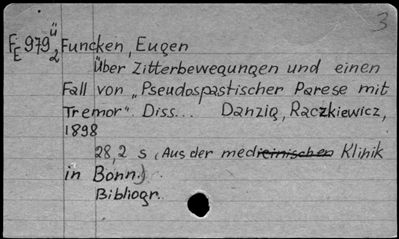 3
Fe 979 ü/2 Funcken, Eugen
Über Zitterbewegungen und einen
Fall von „Pseudospastischer Parese mit
Tremor". Diss... Danzig, Raczkiewicz,
1898
28,2 s. (Aus der medicinischen Klinik
in Bonn.)
Bibliogr.